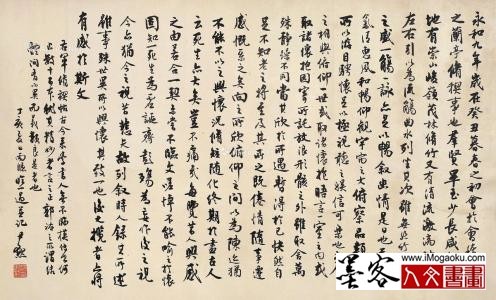 永和九年歲在癸丑暮春之初會於會稽
之蘭亭脩禊事也群賢畢至少長咸
地有崇山峻領茂林脩竹又有清流激湍
左右引以為流觴曲水列坐其次雖無絲竹
之盛一觴一詠亦足以暢敘幽情是日也
氣清惠風和暢仰觀宇宙之大俯察品類
所以游目騁懷足以極視聽之娛信可樂也
之相與俯仰一世或取諸懷抱悟言一室之內或
取諸懷抱因寄所託放浪形骸之外雖趣舍萬
殊靜躁不同當其欣於所遇暫得於己快然自
足不知老之將至及其所之既惓情隨事遷
感慨係之矣向之所欣俛仰之間以為陳迹猶
不能不以之興懷況脩短隨化終期於盡古人
云死生亦大矣豈不痛哉每攬昔人興感
之由若合一契未嘗不臨文嗟悼不能喻之於懷
固知一死生為虛誕齊彭殤為妄作後之視
今亦猶今之視昔悲夫故列敘時人錄其所述
雖世殊事異所以興懷其致一也後之攬者亦將
有感於斯文
墨客
www.iMogaoku.com
人文書畫